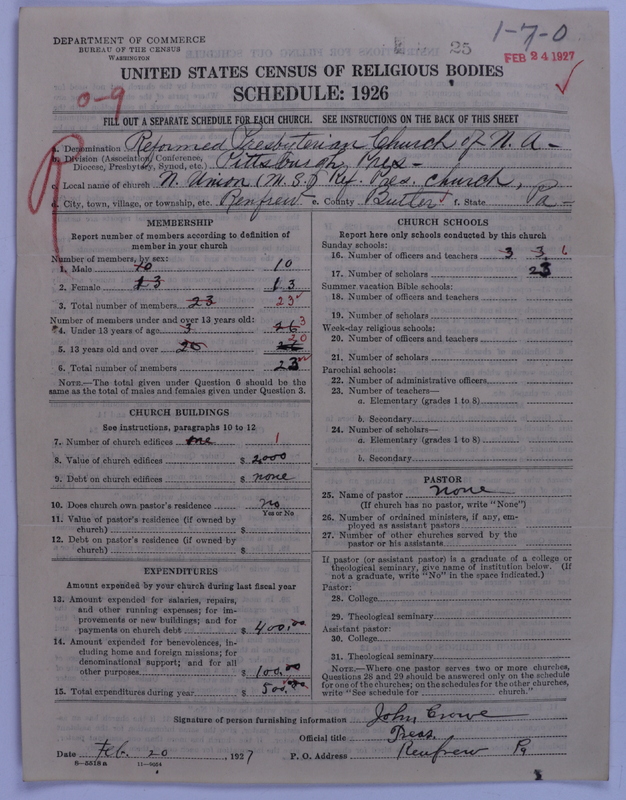 1-7-0
25
FEB 24 1927
DEPARTMENT OF COMMERCE
BUREAU OF THE CENSUS
WASHINGTON
UNITED STATES CENSUS OF RELIGIOUS BODIES
SCHEDULE: 1926
0-9
FILL OUT A SEPARATE SCHEDULE FOR EACH CHURCH. SEE INSTRUCTIONS ON THE BACK OF THIS SHEET
a. Denomination Reformed Presbyterian Church of N. A-
b. Division (Association, Conference, Diocese, Presbytery, Synod, etc.) Pittsburgh Pres-
c. Local name of church N. Union (M.S.) Ref. Pres. church,
d. City, town, village, or township, etc. Renfrew e. County Butler f. State Pa-
MEMBERSHIP
Report number of members according to definition of
member in your church
Number of members, by sex:
1. Male 10 10
2. Female 13 13
3. Total number of members 23 23
Number of members under and over 13 years old:
4. Under 13 years of age 3 26 3
5. 13 years old and over 20 26 20
6. Total number of members 23
NOTE.—The total given under Question 6 should be the
same as the total of males and females given under Question 3.
CHURCH BUILDINGS
See instructions, paragraphs 10 to 12
7. Number of church edifices one 1
8. Value of church edifices $ 2000
9. Debt on church edifices $ none
10. Does church own pastor's residence no
Yes or No
11. Value of pastor's residence (if owned by
church) $
12. Debt on pastor's residence (if owned by
church) $
EXPENDITURES
Amount expended by your church during last fiscal year
13. Amount expended for salaries, repairs,
and other running expenses; for im-
provements or new buildings; and for
payments on church debt $ 400.00
14. Amount expended for benevolences, in-
cluding home and foreign missions; for
denominational support; and for all
other purposes $ 100.00
15. Total expenditures during year $ 500.00
CHURCH SCHOOLS
Report here only schools conducted by this church
Sunday schools:
16. Number of officers and teachers 3 3
17. Number of scholars 23
Summer vacation Bible schools:
18. Number of officers and teachers
19. Number of scholars
Week-day religious schools:
20. Number of officers and teachers
21. Number of scholars
Parochial schools:
22. Number of administrative officers
23. Number of teachers—
a. Elementary (grades 1 to 8)
b. Secondary
24. Number of scholars—
a. Elementary (grades 1 to 8)
b. Secondary
PASTOR
25. Name of pastor none
(If church has no pastor, write "None")
26. Number of ordained ministers, if any, em-
ployed as assistant pastors
27. Number of other churches served by the
pastor or his assistants
If pastor (or assistant pastor) is a graduate of a college or
theological seminary, give name of institution below. (If
not a graduate, write "No" in the space indicated.)
Pastor:
28. College
29. Theological seminary
Assistant pastor:
30. College
31. Theological seminary
NOTE.—Where one pastor serves two or more churches,
Questions 28 and 29 should be answered only on the schedule
for one of the churches; on the schedules for the other churches,
write "See schedule for church."
Signature of person furnishing information John Crowe
Official title Treas.
Date Feb. 20, 1927 P. O. Address Renfrew Pa
8-5518a 11-9054